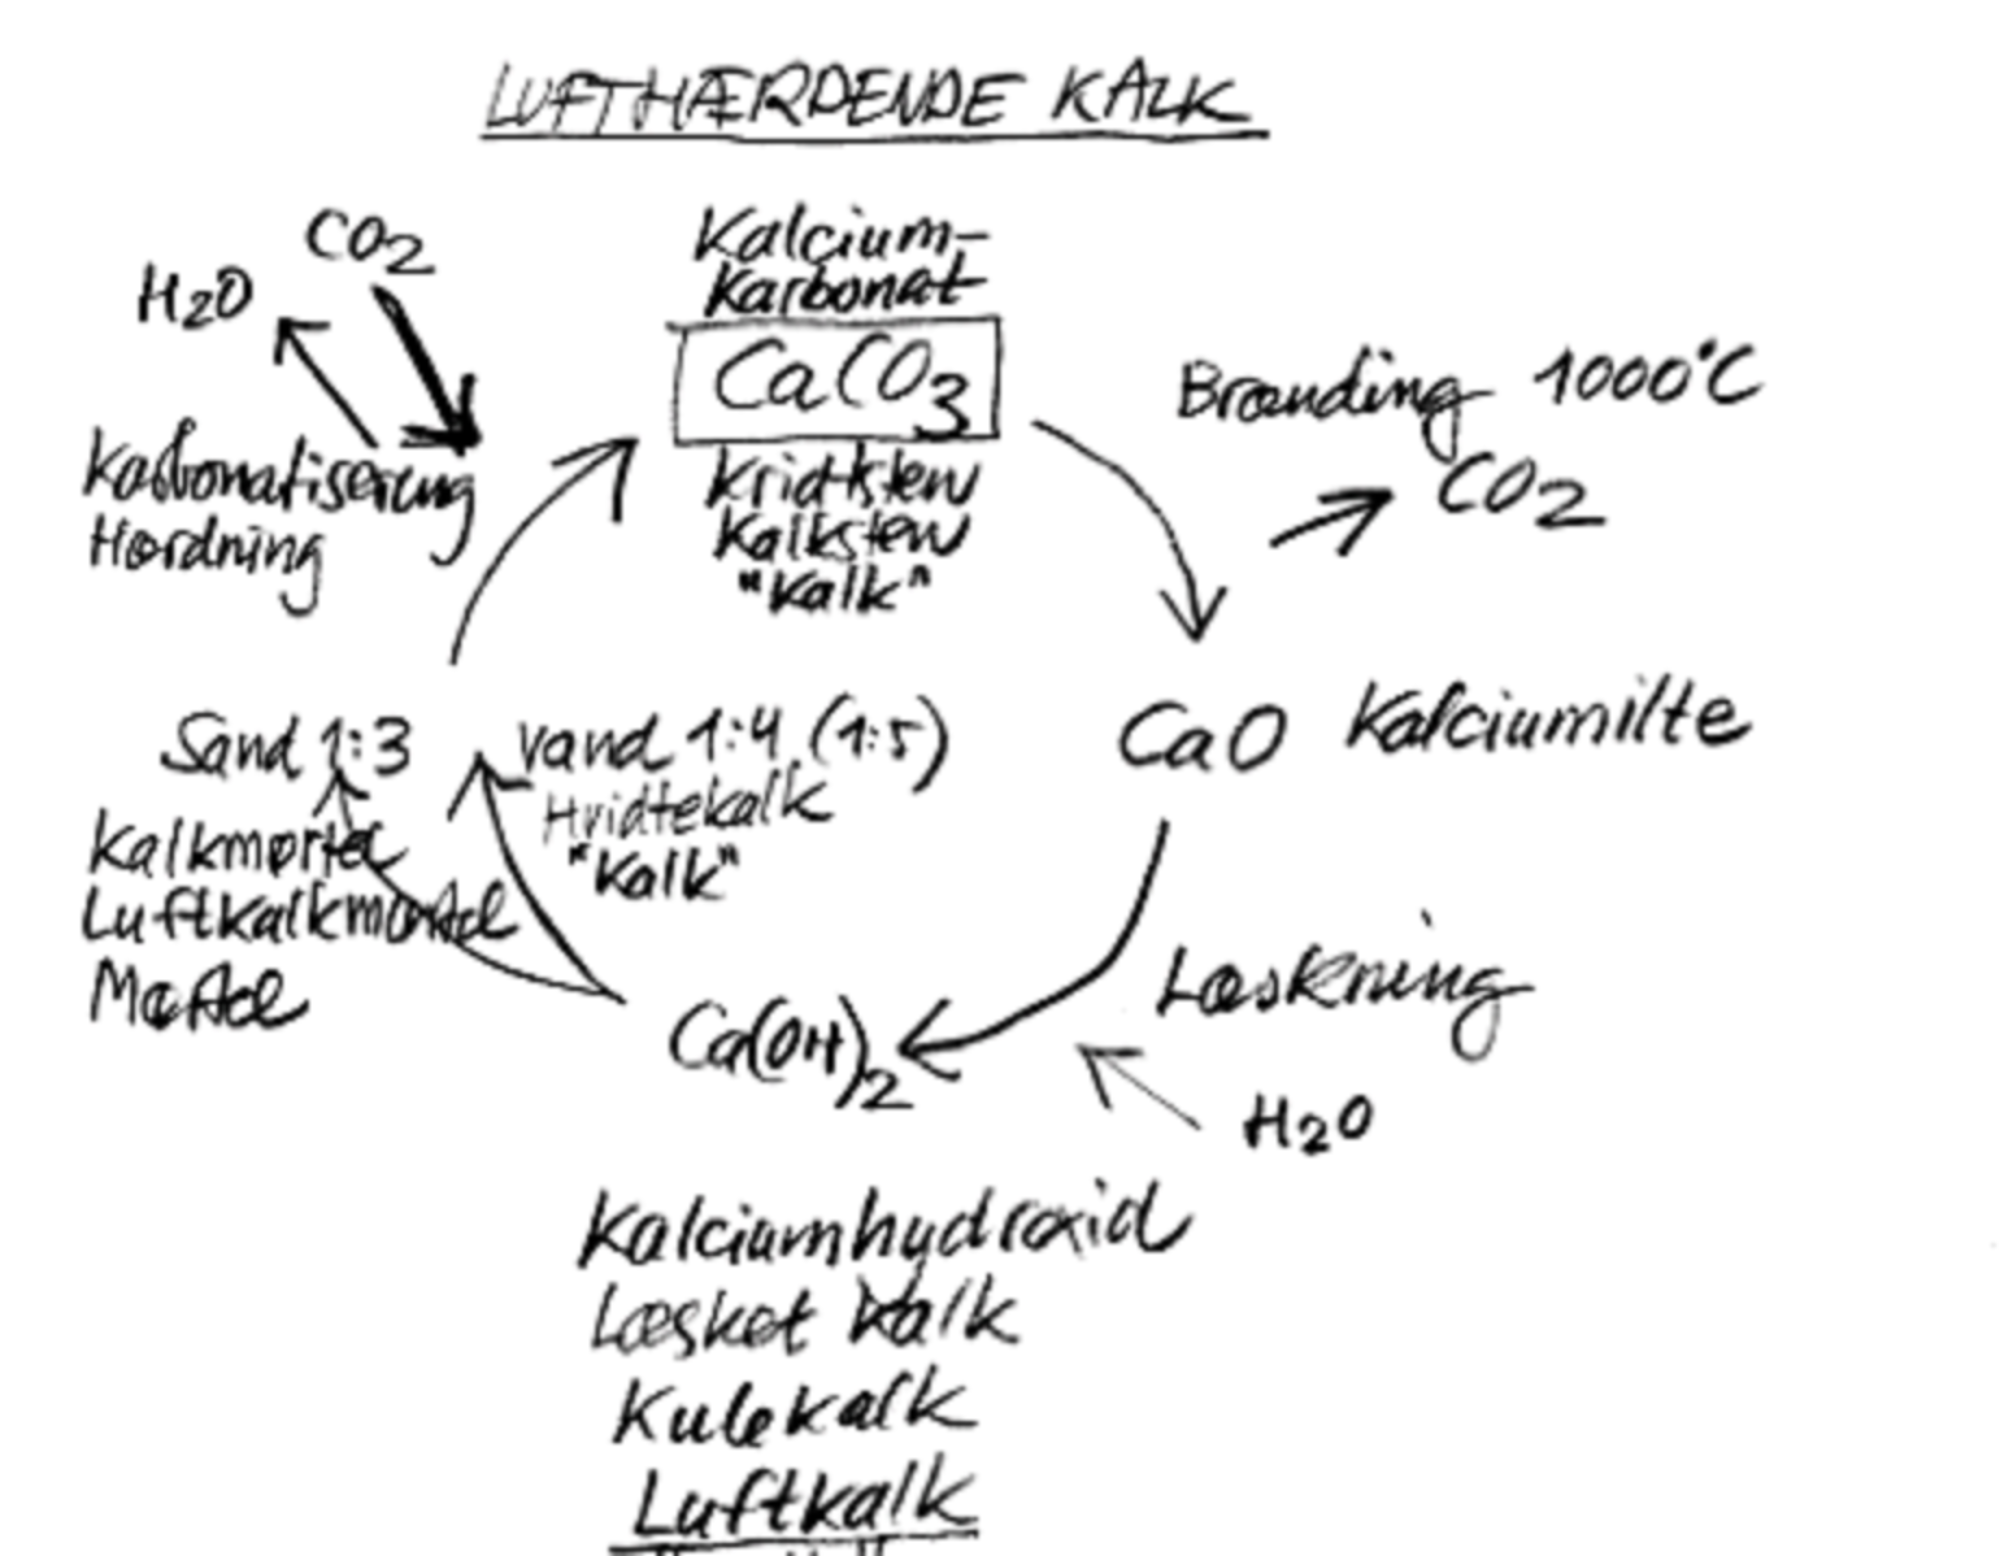 LUFTHÆRDENDE KALK
CO2
H2O
Kalcium-
Karbonat
CaCO3
Kridtsten
Kalksten
"Kalk"
Brænding 1000°C
CO2
Karbonatisering
Hærdning
CaO Kalciumilte
Sand 1:3
Vand 1:4 (1:5)
Hvidtekalk
"Kalk"
Kalkmørtel
Luftkalkmørtel
Mørtel
Læskning
H2O
Ca(OH)2
Kalciumhydroxid
Læsket Kalk
Kulekalk
Luftkalk